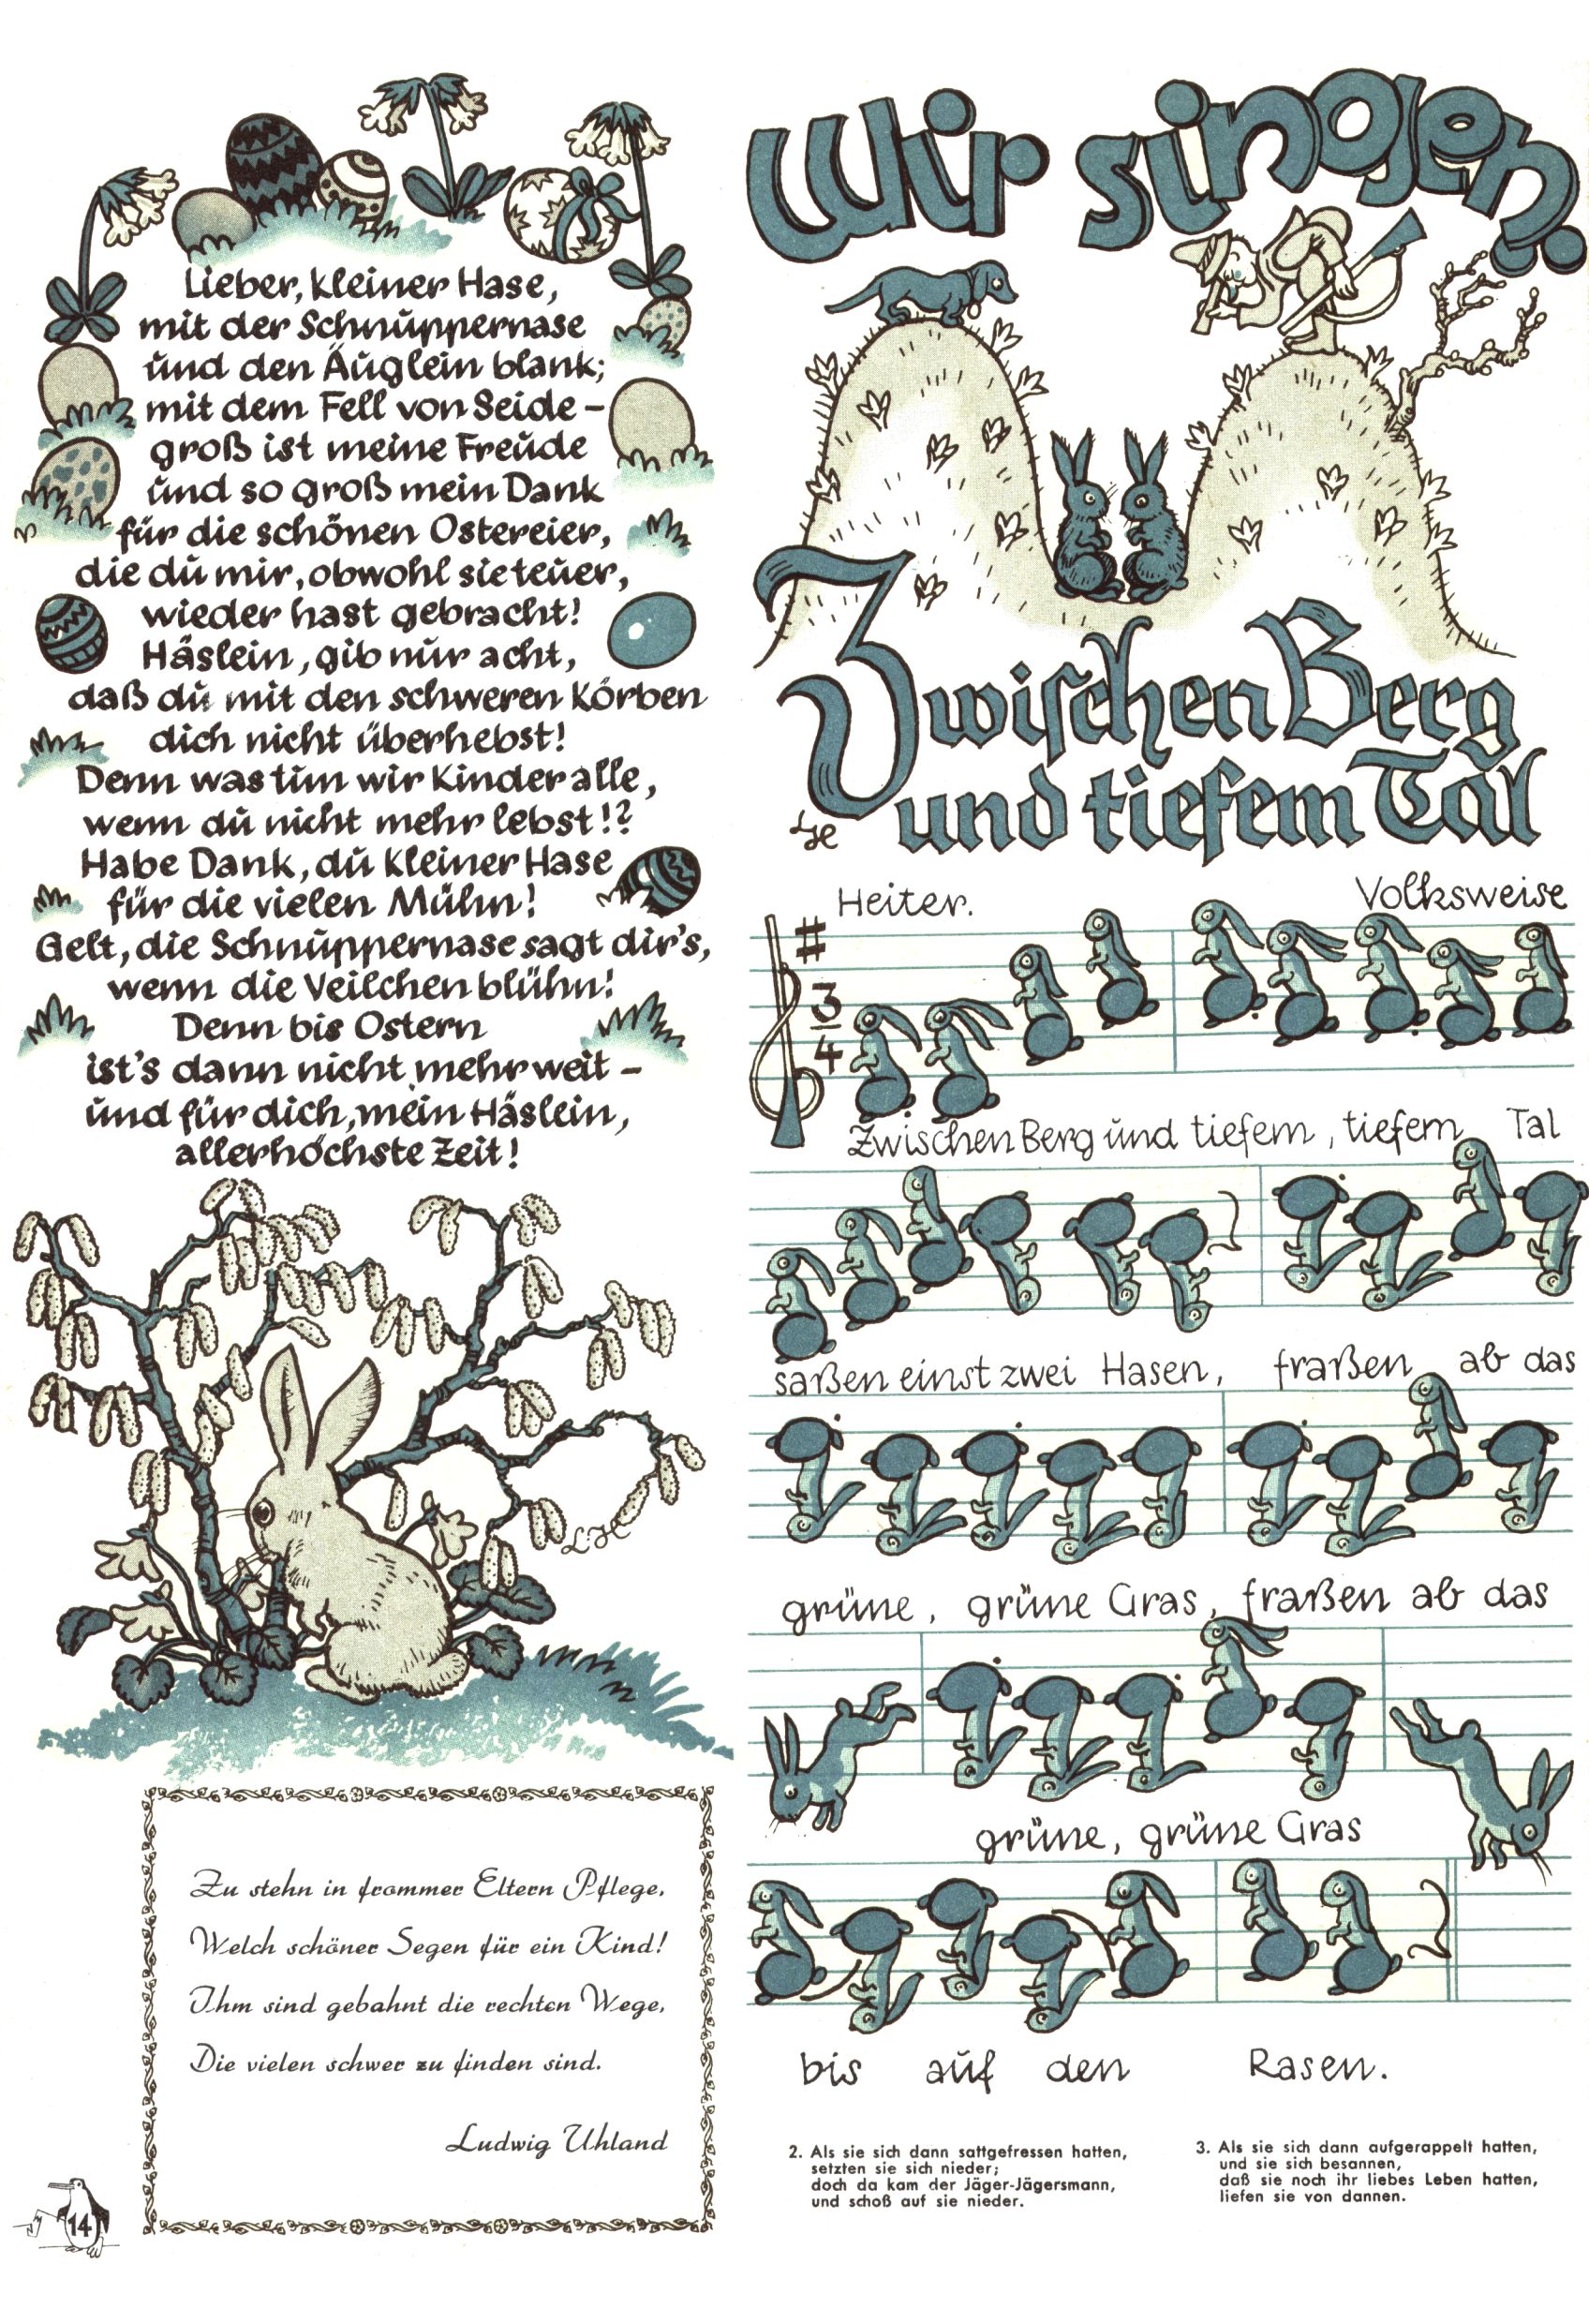 Lieber, kleiner Hase,
mit der Schnuppernase
und den Äuglein blank;
mit dem Fell von Seide –
groß ist meine Freude
und so groß mein Dank
für die schönen Ostereier,
die du mir, obwohl sie teuer,
wieder hast gebracht!
Häslein, gib nur acht,
daß du mit den schweren Körben
dich nicht überhebst!
Denn was tun wir Kinder alle,
wenn du nicht mehr lebst!?
Habe Dank, du kleiner Hase
für die vielen Mühn!
Gelt, die Schnuppernase sagt dir's,
wenn die Veilchen blühn!
Denn bis Ostern
ist's dann nicht mehr weit –
und für dich, mein Häslein,
allerhöchste Zeit!
L.H
Zu stehn in frommer Eltern Pflege,
Welch schöner Segen für ein Kind!
Ihm sind gebahnt die rechten Wege,
Die vielen schwer zu finden sind.
Ludwig Uhland
14
Wir singen.
Zwischen Berg
und tiefem Tal
Heiter.
Volksweise
3
4
Zwischen Berg und tiefem, tiefem Tal
saßen einst zwei Hasen, fraßen ab das
grüne, grüne Gras, fraßen ab das
grüne, grüne Gras
bis auf den Rasen.
2. Als sie sich dann sattgefressen hatten,
setzten sie sich nieder;
doch da kam der Jäger-Jägersmann,
und schoß auf sie nieder.
3. Als sie sich dann aufgerappelt hatten,
und sie sich besannen,
daß sie noch ihr liebes Leben hatten,
liefen sie von dannen.